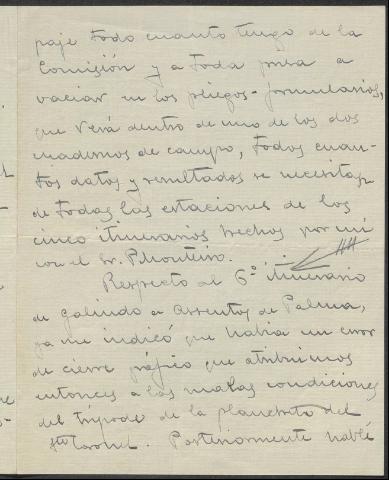 paje todo cuanto tengo de la
Comisión y a toda prisa a
vaciar en los pliegos-formularios,
que verá dentro de uno de los dos
cuadernos de campo, todos cuan-
tos datos y resultados se necesitan
de todas las estaciones de los
cinco itinerarios hechos por mí
con el Sr. P. Monteiro.
Respecto al 6º itinerario
de Galindo a Assentos de Palma,
ya me indicó que había un error
de cierre gráfico que atribuimos
entonces a las malas condiciones
del trípode de la plancheta del
Coronel. Posteriormente hablé